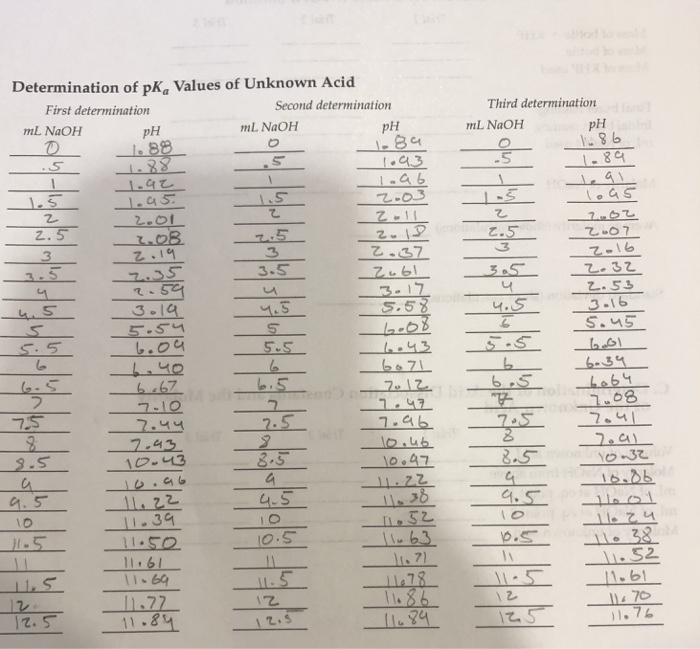 Determination of pKa Values of Unknown Acid
First determination Second determination Third determination
mL NaOH pH mL NaOH pH mL NaOH pH
0 1.88 0 1.89 0 1.86
.5 1.88 .5 1.93 .5 1.89
1 1.92 1 1.96 1 1.91
1.5 1.95 1.5 2.03 1.5 1.95
2 2.01 2 2.11 2 2.02
2.5 2.08 2.5 2.5 2.07
3 2.19 3 2.37 3 2.16
3.5 2.35 3.5 2.61 3.5 2.32
4 2.59 4 3.17 4 2.53
4.5 3.19 4.5 5.58 4.5 3.16
5 5.54 5 6.08 5.45
5.5 6.09 5.5 6.43 5.5 6.01
6 6.40 6 6.71 6 6.34
6.5 6.67 6.5 7.12 6.5 6.64
7 7.10 7 7.47 7 7.08
7.5 7.44 7.5 7.96 7.5 7.41
8 7.93 8 10.46 8 7.91
8.5 10.43 8.5 10.97 8.5 10.32
9 10.96 9 11.22 9 10.86
9.5 11.22 9.5 11.38 9.5 11.01
10 11.39 10 11.52 10 11.24
11.5 11.50 10.5 11.63 10.5 11.38
11 11.61 11 11.71 11 11.52
11.5 11.69 11.5 11.78 11.5 11.61
12 11.77 12 11.86 12 11.70
12.5 11.84 12.5 11.89 12.5 11.76